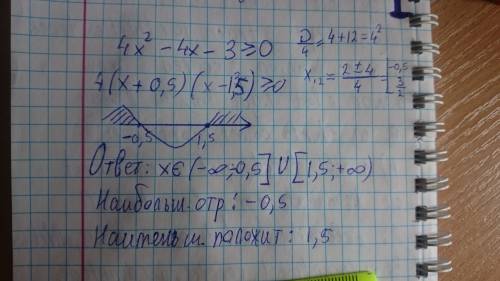 4x² - 4x - 3 ≥ 0
D/4 = 4 + 12 = 4²
4(x + 0,5)(x - 1,5) ≥ 0
x₁,₂ = (2 ± 4)/4 = [-0,5; 3/2
-0,5 1,5
Ответ: x∈(-∞;0,5]U[1,5;+∞)
Наибольш. отр: -0,5
Наименьш. положит: 1,5